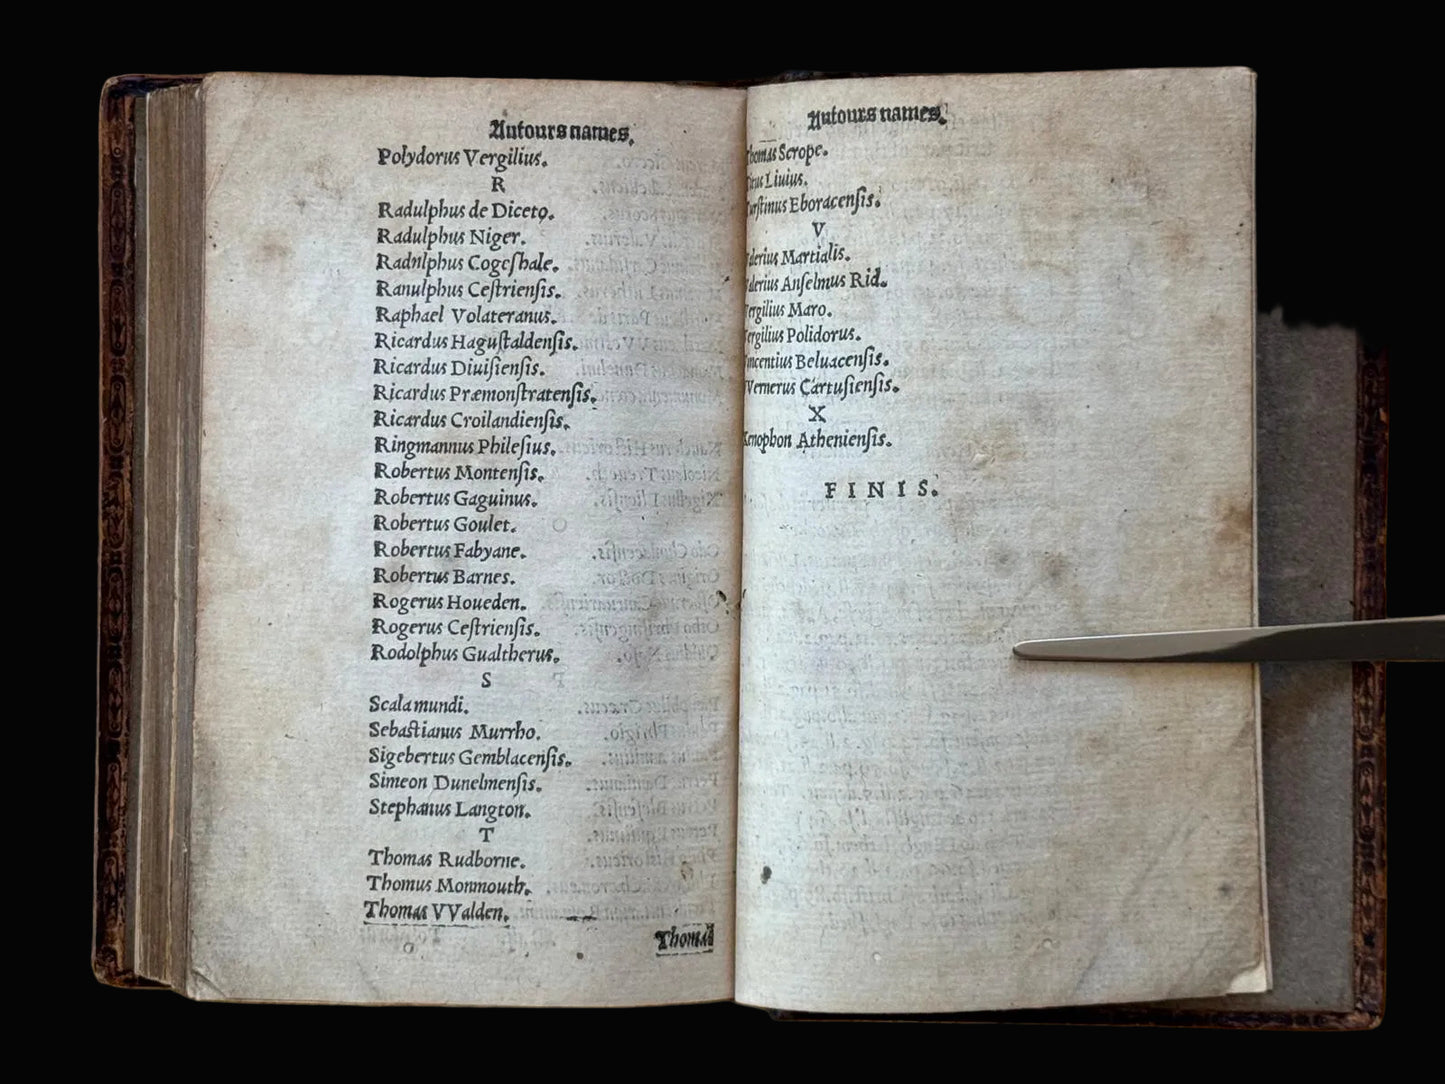 Autours names.
Polydorus Vergilius.
R
Radulphus de Diceto.
Radulphus Niger.
Radnlphus Cogeſhale.
Ranulphus Ceſtrienſis.
Raphael Volateranus.
Ricardus Haguſtaldenſis.
Ricardus Diuiſienſis.
Ricardus Præmonſtratenſis.
Ricardus Croilandienſis.
Ringmannus Phileſius.
Robertus Montenſis.
Robertus Gaguinus.
Robertus Goulet.
Robertus Fabyane.
Robertus Barnes.
Rogerus Houeden.
Rogerus Ceſtrienſis.
Rodolphus Gualtherus.
S
Scala mundi.
Sebaſtianus Murrho.
Sigebertus Gemblacenſis.
Simeon Dunelmenſis.
Stephanus Langton.
T
Thomas Rudborne.
Thomus Monmouth.
Thomas VValden.
Thomas
Autours names.
Thomas Scrope.
Titus Liuius.
Turſtinus Eboracenſis.
V
Valerius Martialis.
Valerius Anſelmus Rid.
Vergilius Maro.
Vergilius Polidorus.
Vincentius Beluacenſis.
VVernerus Cartuſienſis.
X
Xenophon Athenienſis.
FINIS.